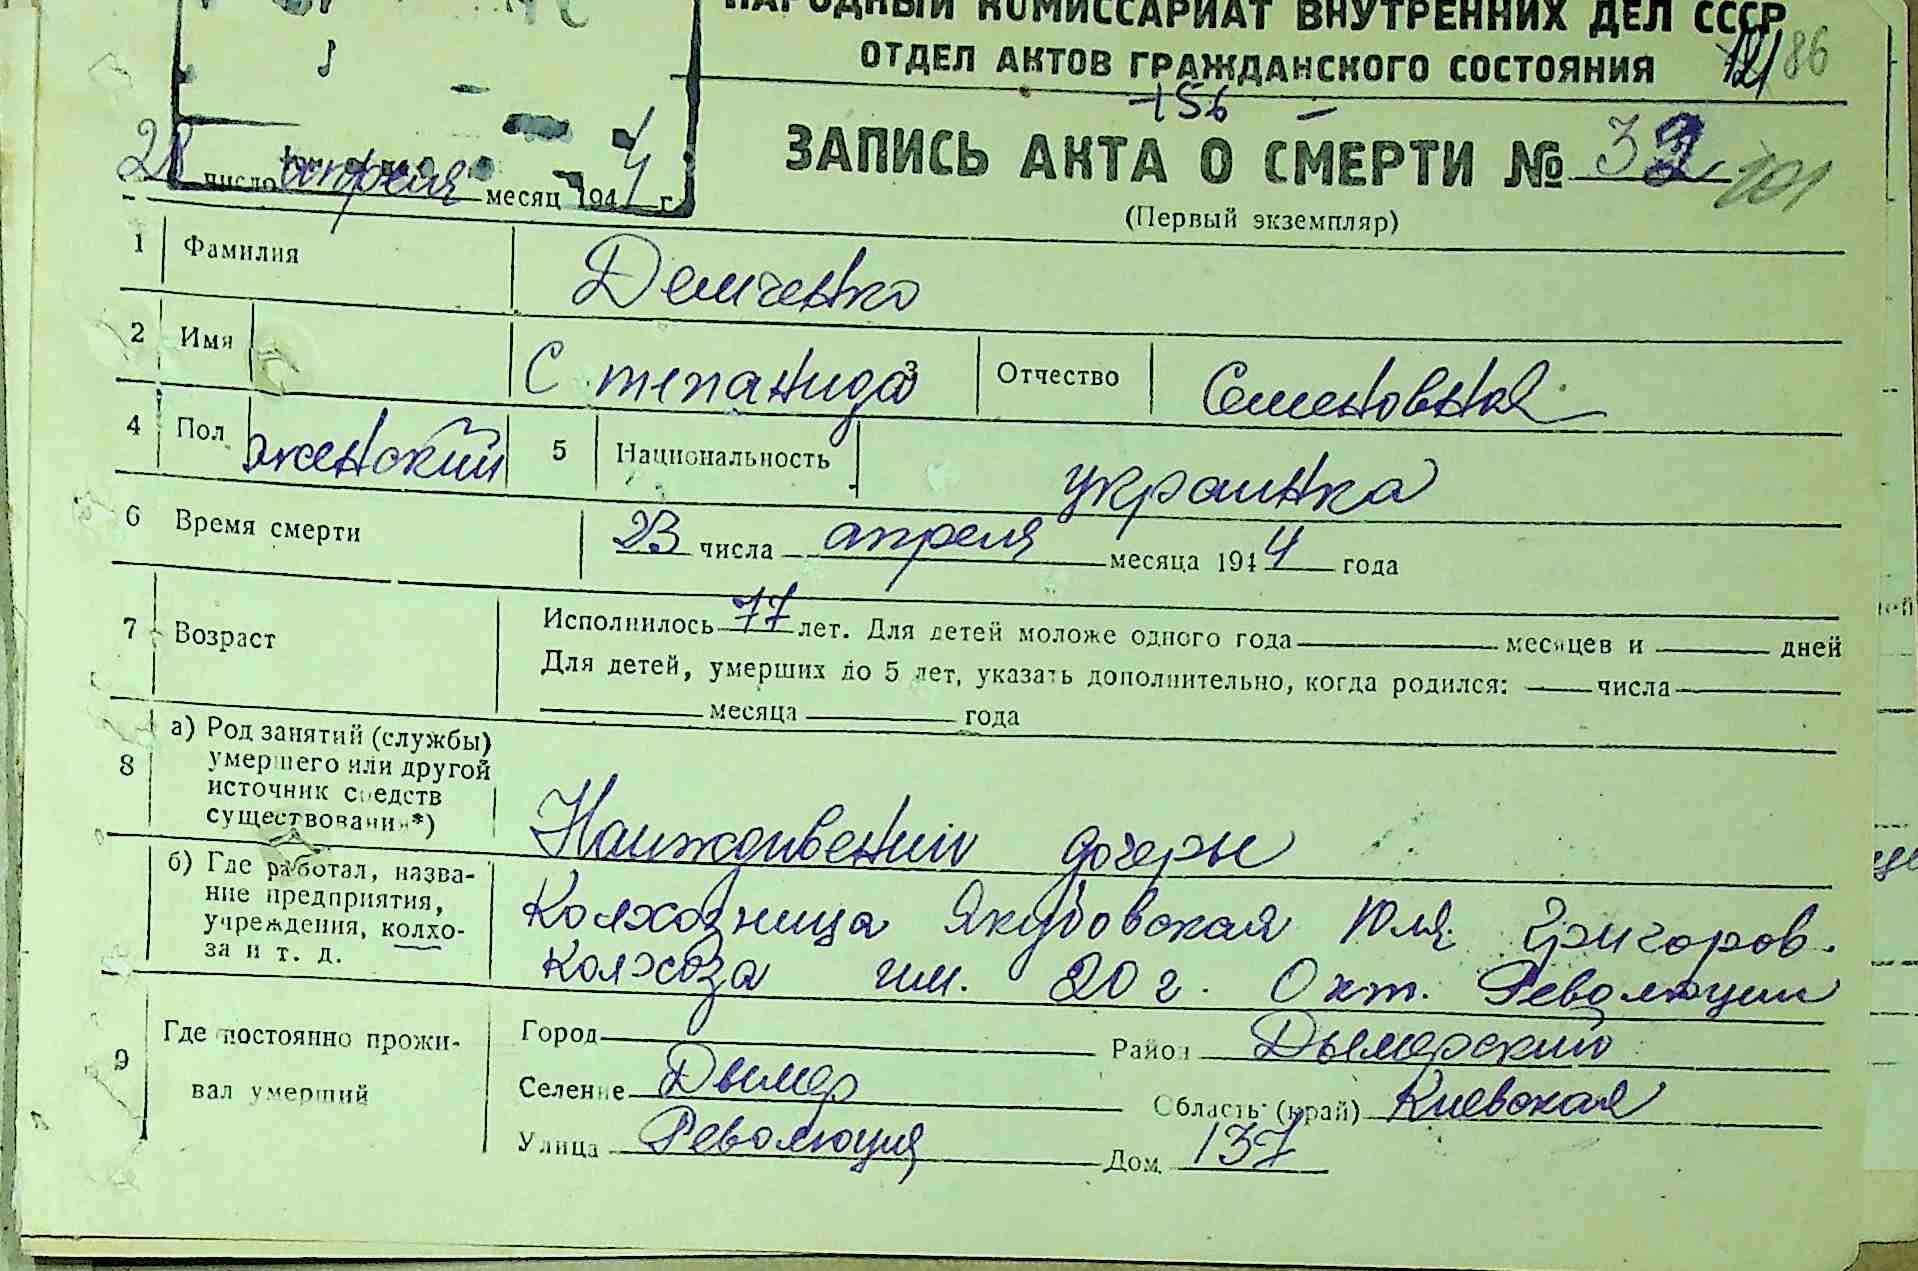 НАРОДНЫЙ КОМИССАРИАТ ВНУТРЕННИХ ДЕЛ СССР
ОТДЕЛ АКТОВ ГРАЖДАНСКОГО СОСТОЯНИЯ
121 86
156
ЗАПИСЬ АКТА О СМЕРТИ № 32
101
(Первый экземпляр)
28 число апреля месяц 1944 г.
1 Фамилия Демченко
2 Имя Степанида 3 Отчество Семеновная
4 Пол женский 5 Национальность украинка
6 Время смерти 23 числа апреля месяца 1944 года
7 Возраст Исполнилось 77 лет. Для детей моложе одного года месяцев и дней
Для детей, умерших до 5 лет, указать дополнительно, когда родился: числа
месяца года
8 а) Род занятий (службы)
умершего или другой
источник средств
существования*)
Наиждивении дочеры
б) Где работал, назва-
ние предприятия,
учреждения, колхо-
за и т. д.
Колхозница Якубовская Юля Григоров.
колхоза им. 20 г. Окт. Революции
9 Где постоянно прожи-
вал умерший
Город Район Дымерский
Селение Дымер Область (край) Киевская
Улица Революция Дом 137